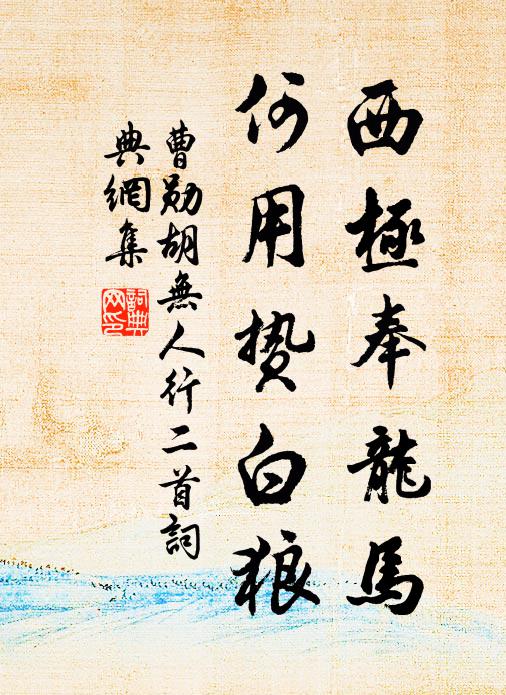 西極奉龍馬
何用贄白狼
曹勛胡無人行二首詞
典網集
詞典網印